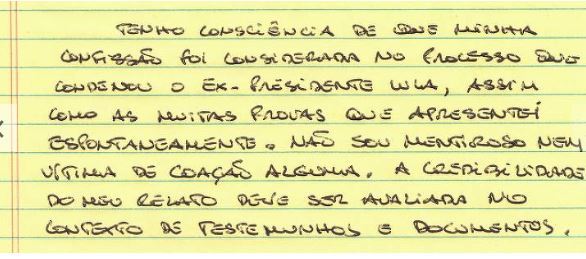 TENHO CONSCIÊNCIA DE QUE MINHA
CONFISSÃO FOI CONSIDERADA NO PROCESSO QUE
CONDENOU O EX-PRESIDENTE LULA, ASSIM
COMO AS MUITAS PROVAS QUE APRESENTEI
ESPONTANEAMENTE. NÃO SOU MENTIROSO NEM
VÍTIMA DE COAÇÃO ALGUMA. A CREDIBILIDADE
DO MEU RELATO DEVE SER AVALIADA NO
CONTEXTO DE TESTEMUNHOS E DOCUMENTOS.